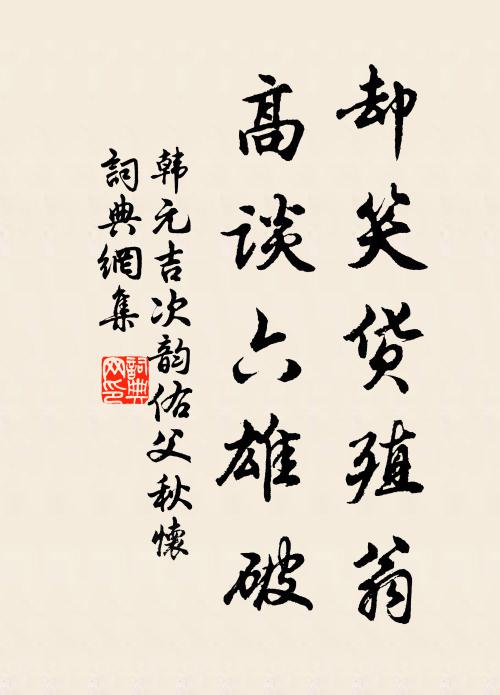 却笑货殖翁
高谈六雄破
韩元吉次韵佑父秋懷
詞典網集
詞典网印